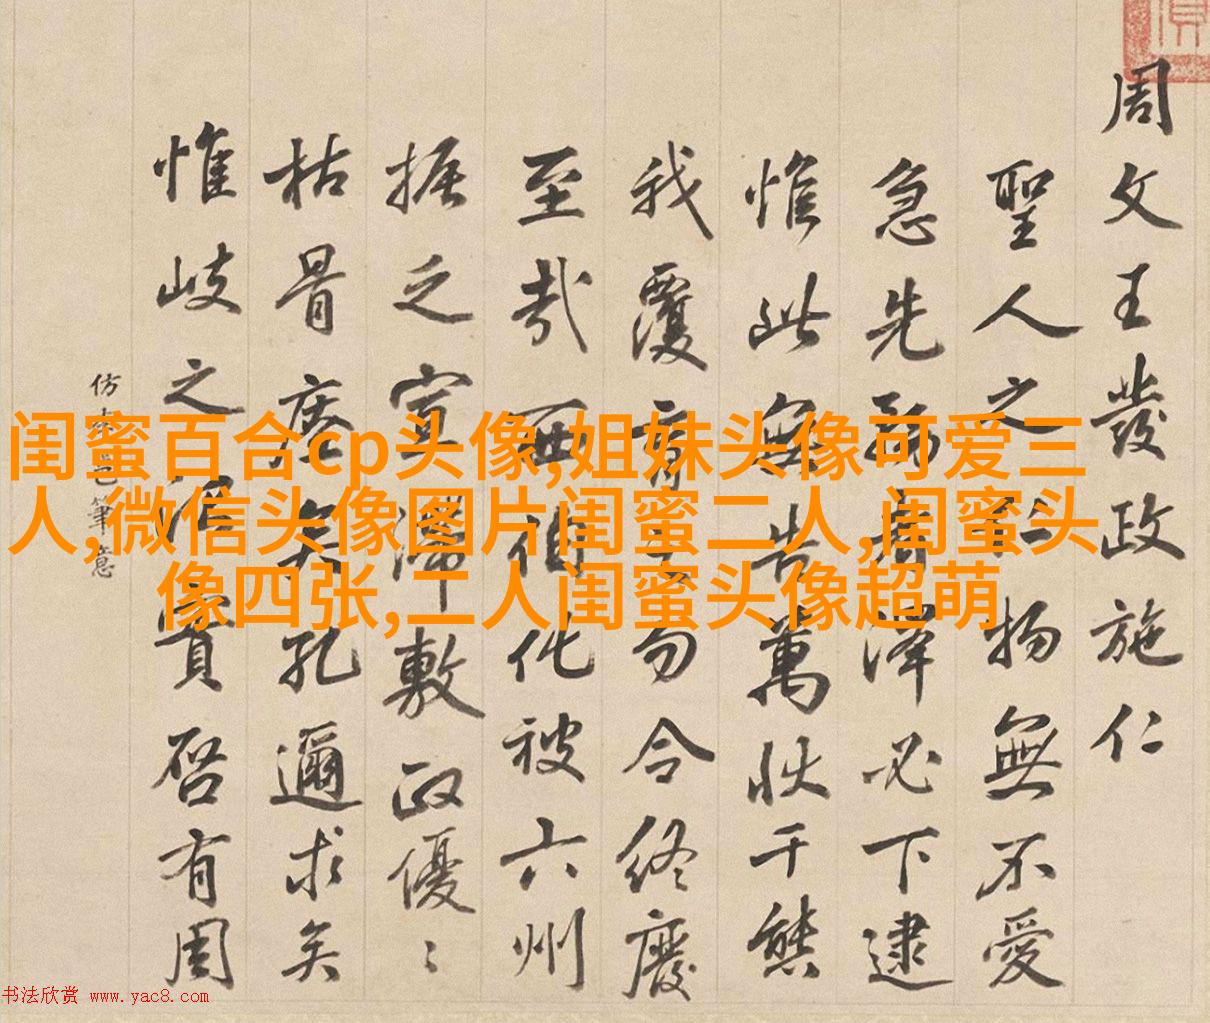 周文王發政施仁
聖人之物無不愛
急先澤必下逮
惟此無告萬狀千態
我覆勿令終廢
至哉西伯化被六州
振之宣滯敷政優〻
枯骨矣孔邇求矣
惟岐之實啓有周
仿筆意
闺蜜百合cp头像,姐妹头像可爱三
人,微信头像图片闺蜜二人,闺蜜头
像四张,二人闺蜜头像超萌
书法欣赏 www.yac8.com